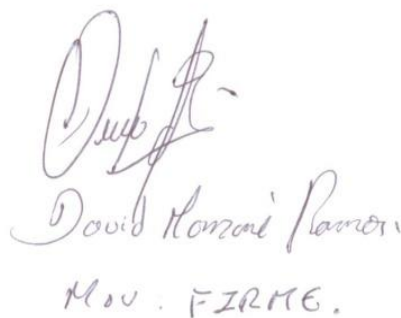 David Mamani Ramos.
Mov : FIRME.